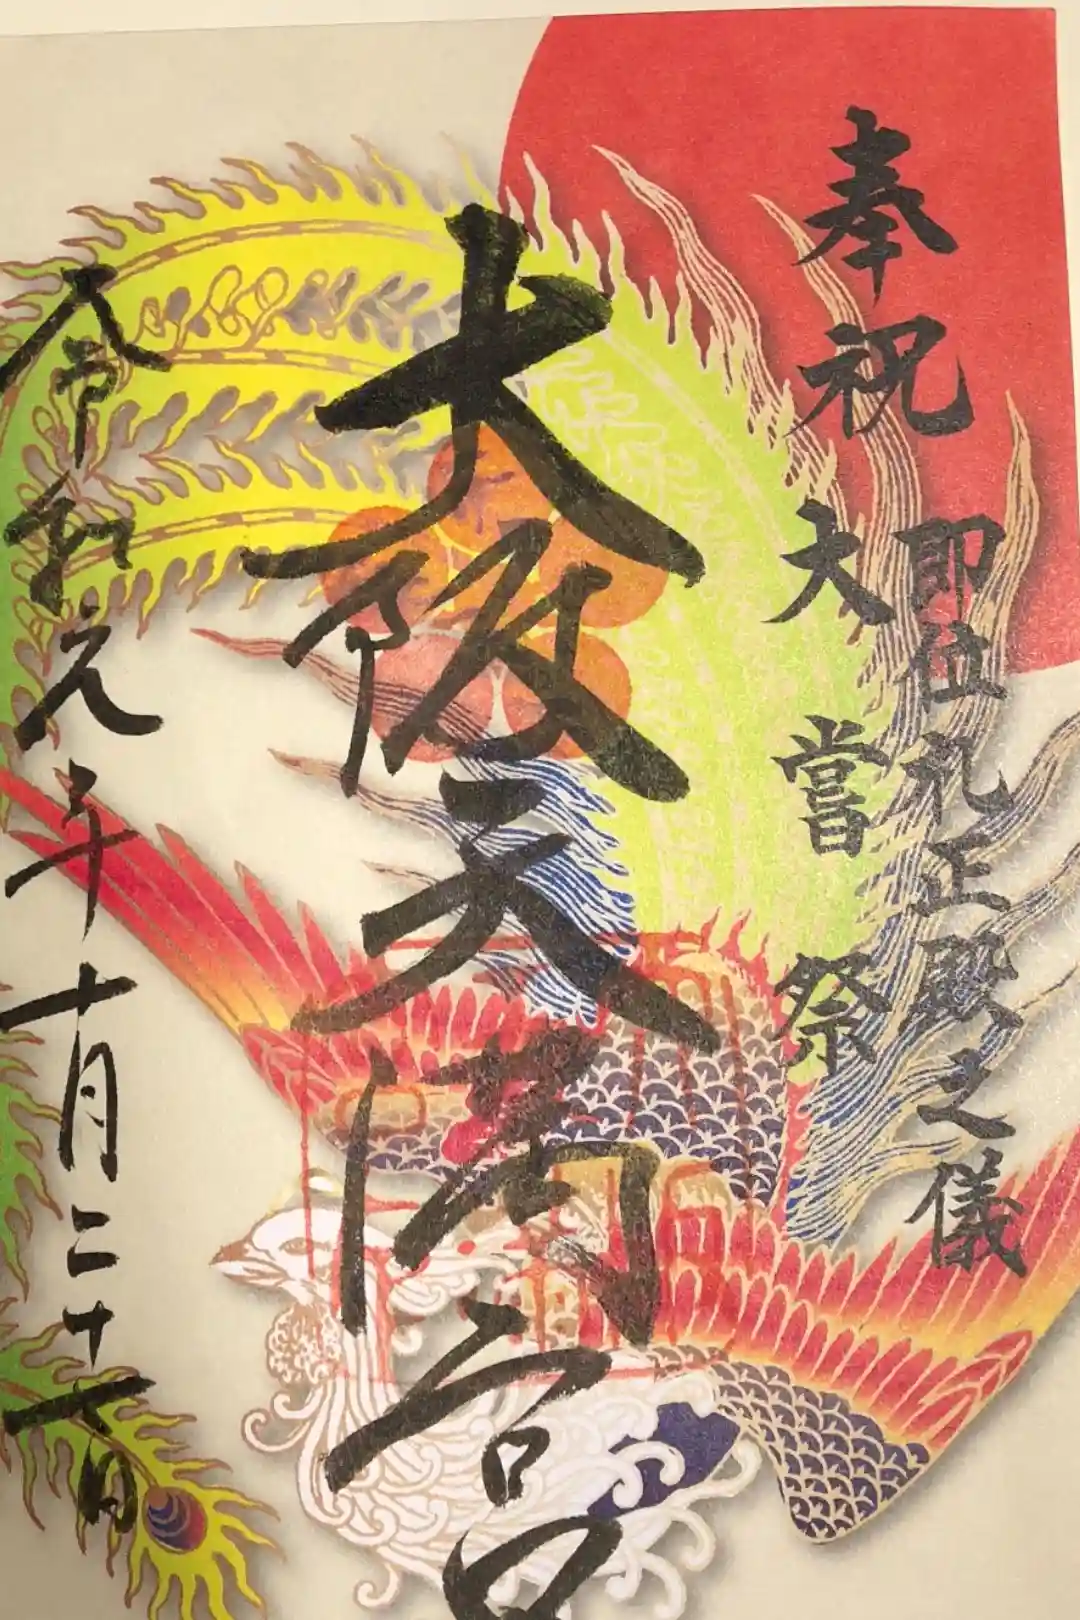 奉祝
即位礼正殿之儀
大嘗祭
大阪天満宮
令和元年十月二十日